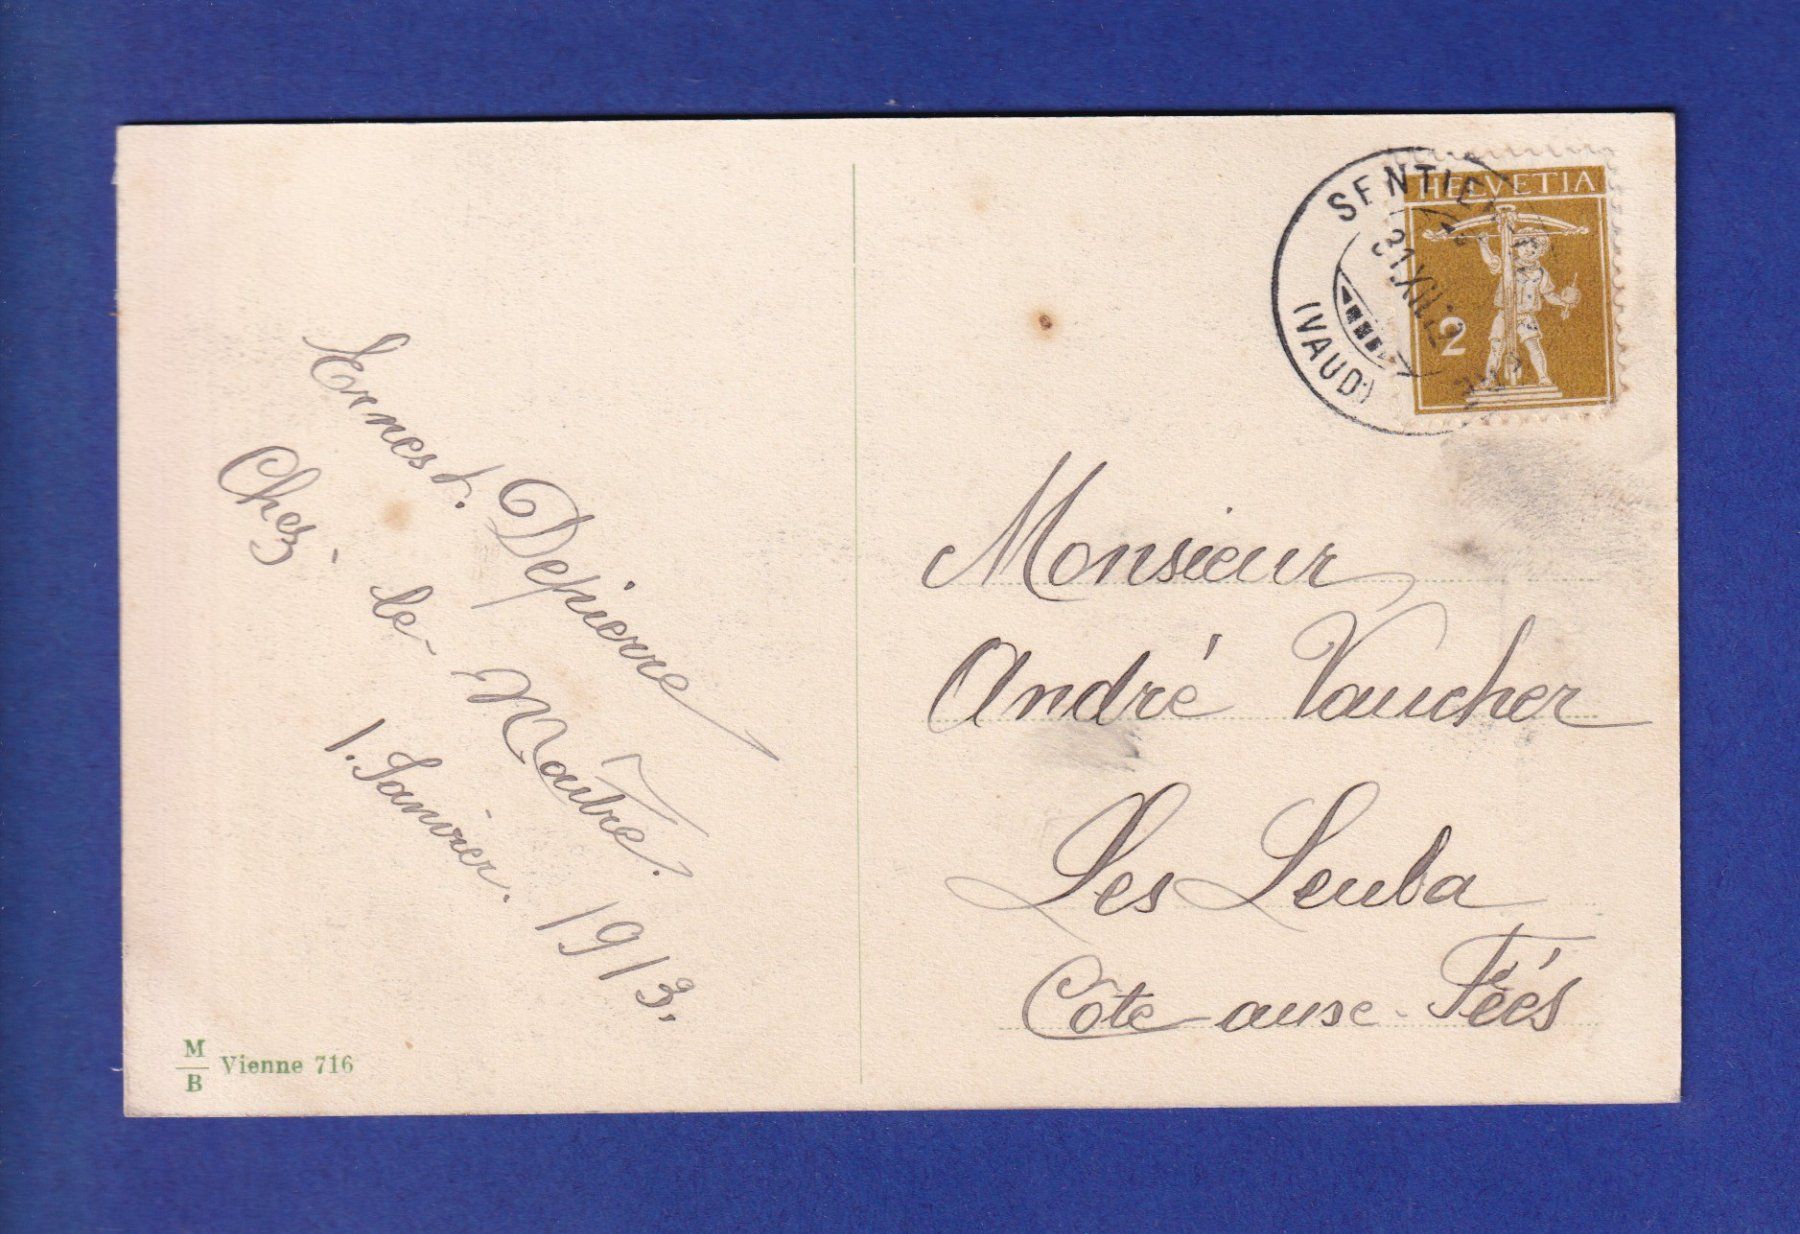 Ernest. Depierre
Chez le Maître.
1. Janvier. 1913.
M
B
Vienne 716
SENTIER
31.XII.12
(VAUD)
HELVETIA
2
Monsieur
André Vaucher
Les Leuba
Côte auxe-Féés